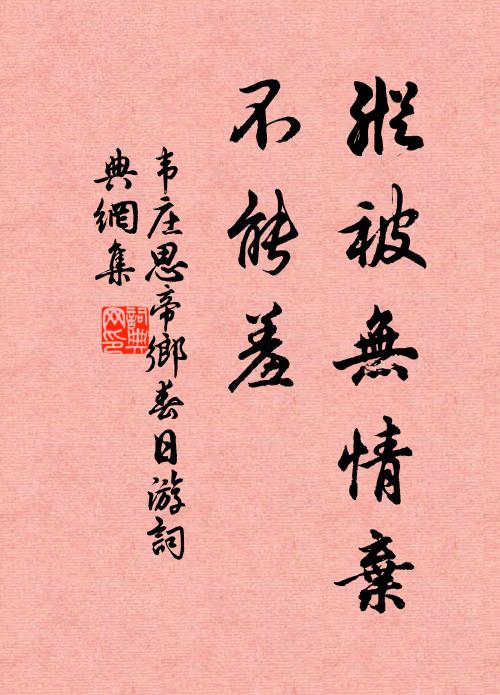 縱被無情棄
不能羞
韦庄思帝鄉春日游詞
典網集
詞典
网印